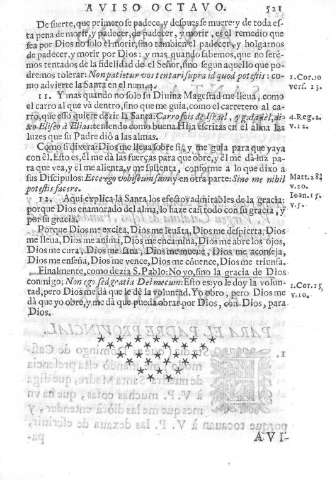 AVISO OCTAVO. 521
De suerte, que primero se padece, y despues se muere; y de toda es-
ta pena de morir, y padecer, de padecer, y morir, es el remedio que
sea por Dios no solo el morir, sino tambien el padecer, y holgarnos
de padecer, y morir por Dios; y mas, quando sabemos, que no seré-
mos tentados de la fidelidad de el Señor, sino segun aquello que po-
drémos tolerar: Non patietur vos tentari supra id quod potestis: co-
mo advierte la Santa en el num.
1. Cor. 10
vers. 13.
11. Y mas quando no solo su Divina Magestad me lleva, como
el carro al que và dentro, sino que me guia, como el carretero al ca-
rro, que esso quiere dezir la Santa: Carro sois de Israel,
Eliseo à Elias: teniendo como buena Hija escritas en el alma las
luzes que su Padre diò à las almas.
4. Reg. 2.
v. 12.
Como si dixera: Dios me lleva sobre sì, y me guia para que vaya
con èl. Esto es, èl me dà las fuerças para que obre, y èl me dà luz pa-
ra que vea, y èl me alienta, y me sustenta, conforme à lo que dixo à
sus Discipulos: Ecce ego vobiscum sum; y en otra parte: Sine me nihil
potestis facere.
Matt. 28.
v. 20.
Ioan. 15.
v. 5.
12. Aqui explica la Santa los efectos admirables de la gracia:
porque Dios enamorado del alma, lo haze casi todo con su gracia, y
por su gracia.
Porque Dios me excita, Dios me levanta, Dios me despierta, Dios
me lleva, Dios me anima, Dios me encamina, Dios me abre los ojos,
Dios me cura, Dios me sana, Dios me mueve, Dios me aconseja,
Dios me enseña, Dios me vence, Dios me convence, Dios me triunfa.
Finalmente, como dezia S. Pablo: No yo, sino la gracia de Dios
conmigo: Non ego sed gratia Dei mecum: Esto es yo le doy la volun-
tad, pero Dios me dà que le dè la voluntad. Yo obro, pero Dios me
dà que yo obre, y me dà que pueda obrar por Dios, con Dios, para
Dios.
1. Cor. 15
v. 10.
AVI-